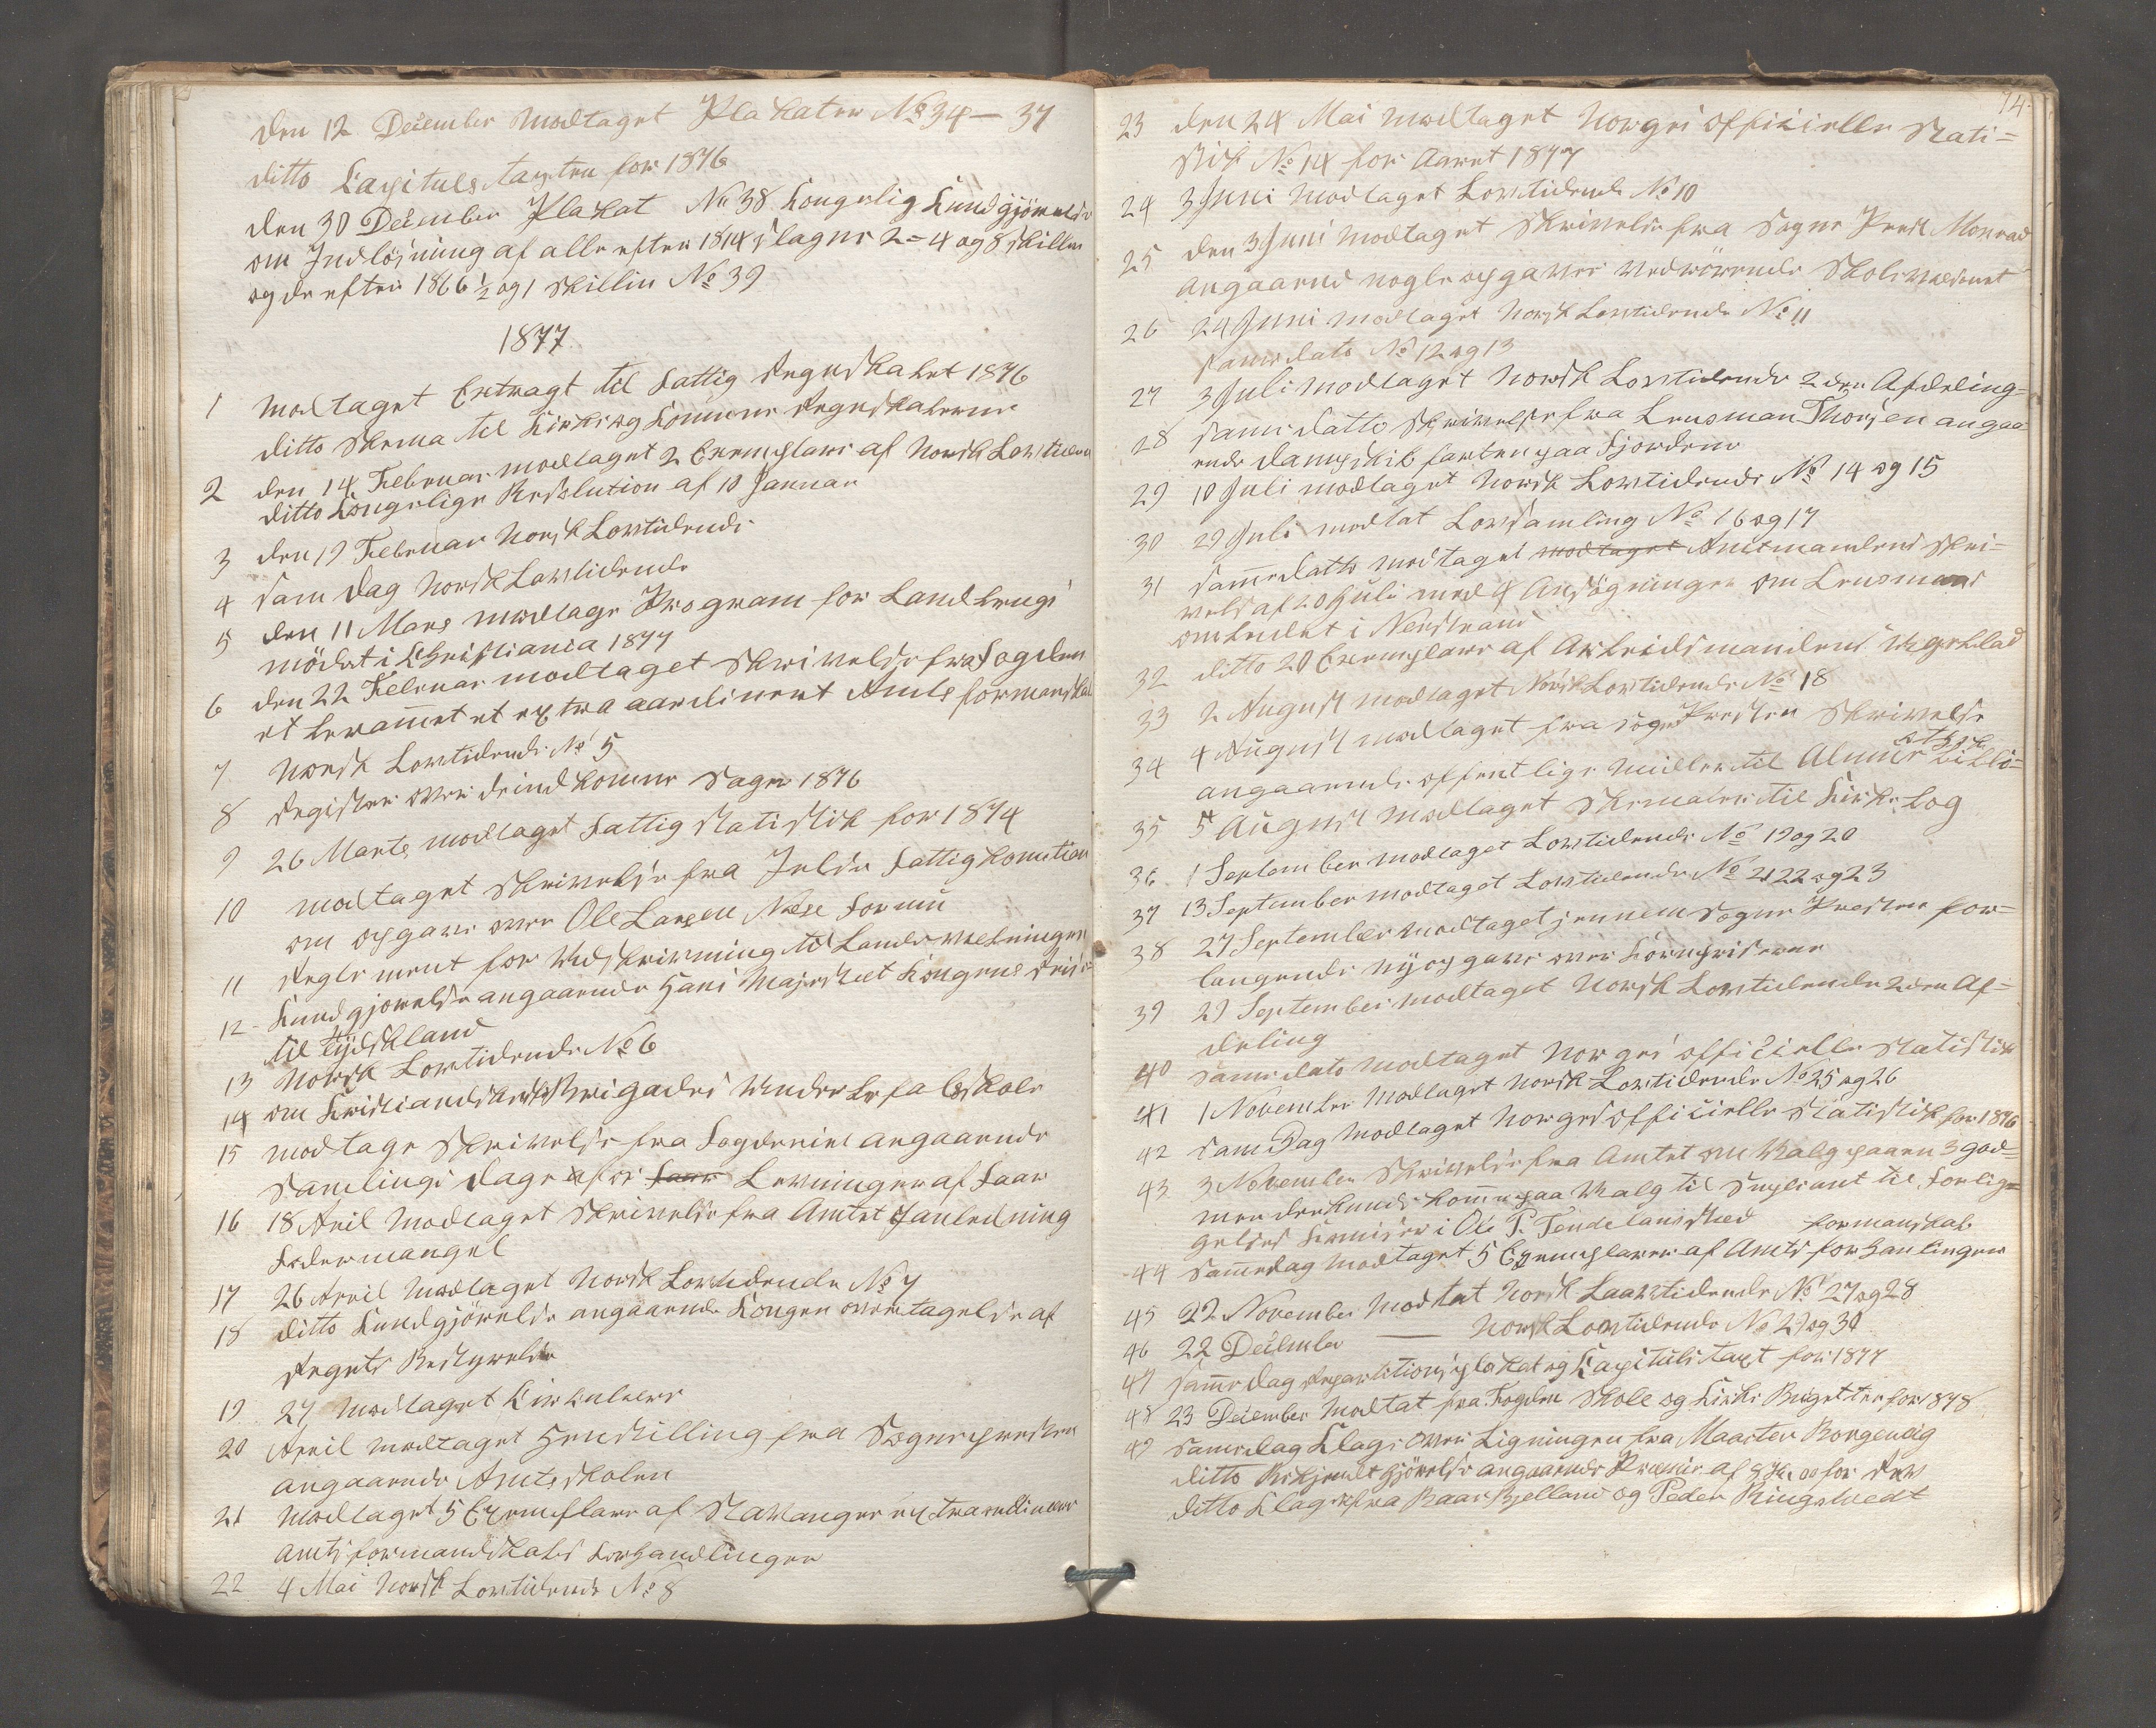 den 12 December modtaget Plakater No 34 — 37
ditto Kapitulstaxten for 1876
den 30 December Plakat No 38 Kongelig Kundgjörelse
om Indlösning af alle efter 1814 slagne 2 = 4 og 8 skillin
og de efter 1866 ½ og 1 skillin No 39
1877
1 modtaget Extragt til Fattig Regnskabet 1876
ditto Skema til Kirke og Komune Regnskaberne
2 den 14 Februar modtaget 2 Exemplarer af Norsk Lovtiden
ditto Kongelige Resolution af 10 Januar
3 den 19 Februar Norsk Lovtidende
4 sam Dag Norsk Lovtidende
5 den 11 Mars modtage Program for Landbrugs
mödet i Christiania 1877
6 den 22 Februar modtaget Skrivelse fra Fogden
et berammet et extra aardinert Amtsformandskab
7 Norsk Lovtidende No 5
8 Register over de indkomne Sager 1876
9 26 Marts modtaget Fattigstatistik for 1874
10 modtaget Skrivelse fra Jelse Fattigkomition
om opgave over Ole Larsen
11 Reglement for Udskrivning til Landeværningen
12 - Kundgjørelse angaaende Hans Majestæt Kongens Reise
til tydskland
13 Norsk Lovtidende No 6
14 om Kristiandsandske Brigades Underbefalsskole
15 modtage Skrivelse fra Fogderiet angaaende
Samlings Dage af de Faar Levninger af Faar
16 18 April modtaget Skrivelse fra Amtet I anledning
Fodermangel
17 26 April modtaget Norsk Lovtidende No 7
18 ditto Kundgjörelse angaaende Kongen overtagelse af
Regets Bestyrelse
19 27 modtaget Cirkulære
20 April modtaget Henstilling fra Sognepresten
angaaende Amtsskolen
21 modtaget 5 Exemplarer af Stavanger extraordinære
amtsformandskabs Forhandlinger
22 4 Mai Norsk Lovtidende No 8
74
23 den 24 Mai modtaget Norges officielle Stati=
stik No 14 for Aaret 1877
24 3 Juni modtaget Lovtidende No 10
25 den 3 Juni modtaget Skrivelse fra Sogne Prest Monrad
angaaend nogle opgaver vedrörende Skolevæsenet
26 24 Juni modtaget Norsk Lovtidende No 11
samedato No 12 og 13
27 3 Juli modtaget Norsk Lovtidende 2den Afdeling=
28 samedatto Skrivelse fra Lensman Thorsen angaa
ende dampskibsfarten paa Fjordene
29 10 Juli modtaget Norsk Lovtidende No 14 og 15
30 29 Juli modtat Lovsamling No 16 og 17
31 Samedatto modtaget modtaget Amtmandens Skri=
velse af 20 Juli med 4 Ansögninger om Lensmans
ombudet i Nerstrand
32 ditto 20 Exemplarer af Arbeidsmandens Ugeblad
33 2 August modtaget Norsk Lovtidende No 18
34 4 August modtaget fra Sogne Presten Skrivelse
angaaende offentlige midler til Almue Bibli=
othek
35 5 August modtaget Skemater til Kirke tog
36 1 September modtaget Lovtidende No 19 og 20
37 13 September modtaget Lovtidende No 21 22 og 23
38 27 September modtaget jennem Sogne Presten for=
langende ny opgave over Kornpriserne
39 29 September modtaget Norsk Lovtidende 2den Af=
deling
40 samedato modtaget Norges officielle Statistik
41 1 November modtaget Norsk Lovtidende No 25 og 26
42 sam Dag modtaget Norges officielle Statistik for 1876
43 3 November Skrivelse fra Amtet om Valg paa en 3 god=
mend komme paa Valg til Supliant til Forlig=
gelses Komision i Ole P. Tendelands sted
44 Sammedag modtaget 5 Exemplarer af Amtsformanskabs forhanlinger
45 22 November modtat Norsk Laavtidende No 27 og 28
46 22 December — Norsk Lovtidende No 29 og 30
47 sammedag Repartitionsplakat og Kapitulstaxt for 1877
48 23 December modtat fra Fogden Skole og Kirke Bugetter for 1878
49 samedag Klage over Ligningen fra Maarten Borgenvig
ditto Bekjendtgjörelse angaaende Premie af 8 Kr 00 for
ditto Klage fra Baar Bjelland og Peder Ringstvedt